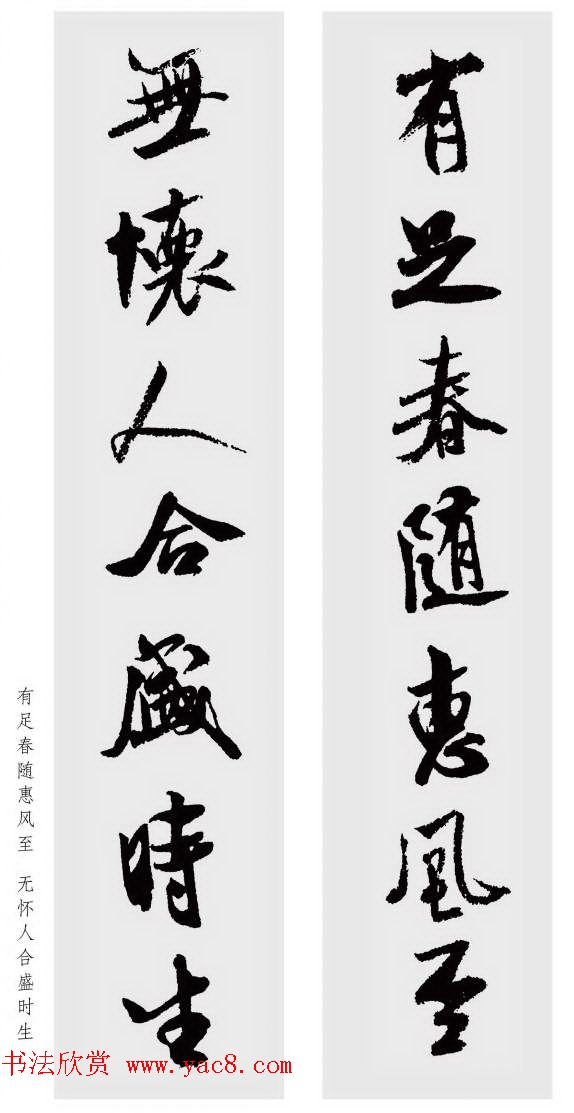 有足春随惠風至
無懷人合盛時生
有足春随惠风至 无怀人合盛时生
书法欣赏 www.yac8.com